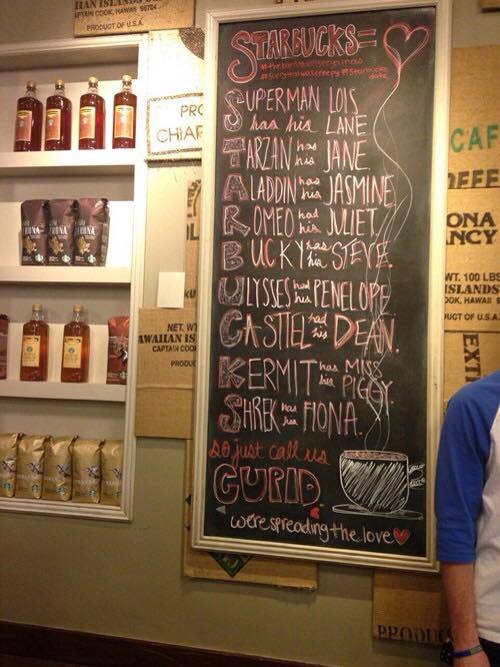 HAN ISLANDS
CAPTAIN COOK, HAWAII 96704
PRODUCT OF U.S.A.
PRO
CHIAP
STARBUCKS=
SUPERMAN LOIS
has his LANE
TARZAN has his JANE.
ALADDIN has his JASMINE,
ROMEO had his JULIET,
BUCKY has his STEVE.
ULYSSES had his PENELOPE
CASTIEL had his DEAN.
KERMIT has his MISS PIGGY.
SHREK has his FIONA.
so just call us
CUPID
we're spreading the love
CAF
OFFE
ONA
NCY
WT. 100 LBS
ISLANDS
OOK, HAWAII
UCT OF U.S.A.
EXT
NET. WT
AWAIIAN IS
CAPTAIN COO
PRODU
PRODUC